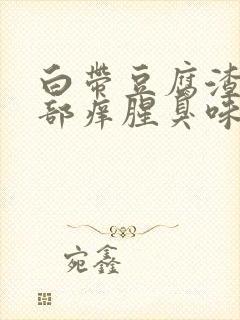 白带豆腐渣
部痒腥臭味
宛鑫